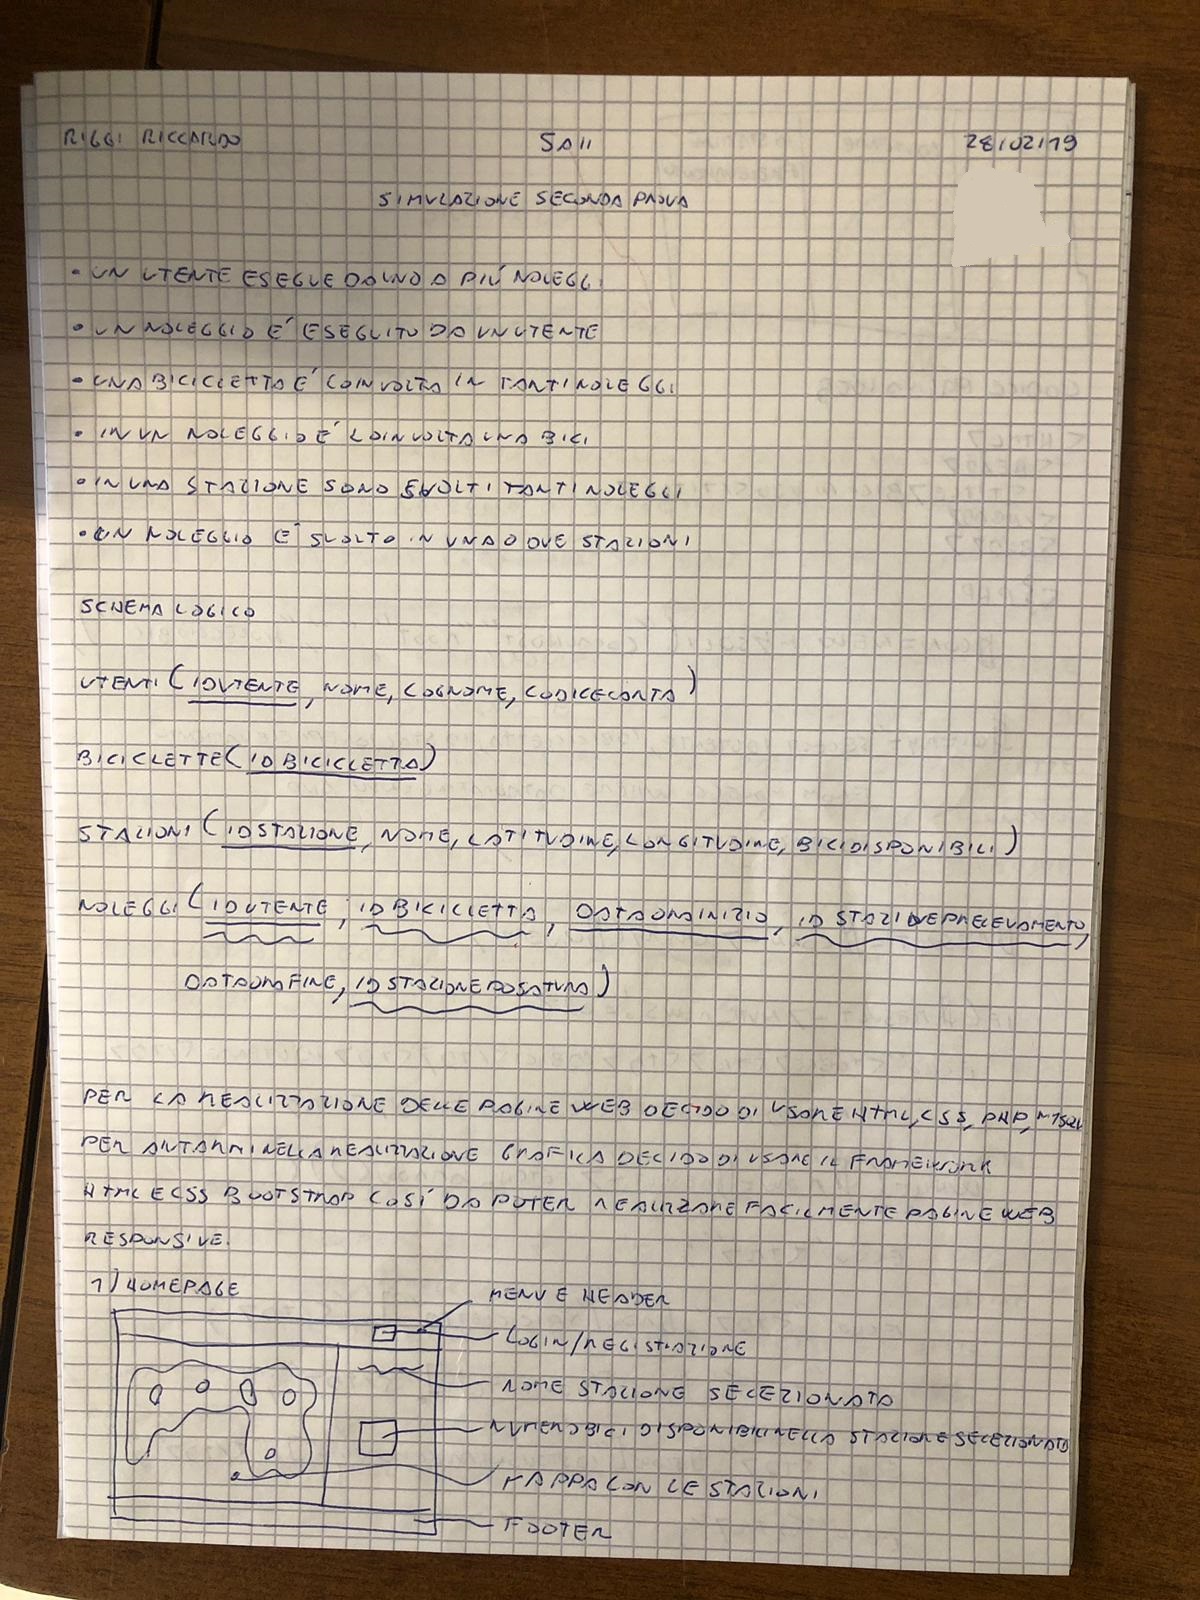 RIGGI RICCARDO 5AII 28/02/19
SIMULAZIONE SECONDA PROVA
• UN UTENTE ESEGUE DA UNO A PIÚ NOLEGGI
• UN NOLEGGIO E' ESEGUITO DA UN UTENTE
• UNA BICICLETTA E' COINVOLTA IN TANTI NOLEGGI
• IN UN NOLEGGIO E' COINVOLTA UNA BICI
• IN UNA STAZIONE SONO SVOLTI TANTI NOLEGGI
• UN NOLEGGIO E' SVOLTO IN UNA O DUE STAZIONI
SCHEMA LOGICO
UTENTI (IDUTENTE, NOME, COGNOME, CODICECARTA)
BICICLETTE (IDBICICLETTA)
STAZIONI (IDSTAZIONE, NOME, LATITUDINE, LONGITUDINE, BICIDISPONIBILI)
NOLEGGI (IDUTENTE, IDBICICLETTA, DATAORAINIZIO, IDSTAZIONEPRELEVAMENTO,
DATAORAFINE, IDSTAZIONEPOSATURA)
PER LA REALIZZAZIONE DELLE PAGINE WEB DECIDO DI USARE HTML, CSS, PHP, MYSQL
PER AIUTARMI NELLA REALIZZAZIONE GRAFICA DECIDO DI USARE IL FRAMEWORK
HTML E CSS BOOTSTRAP COSÍ DA POTER REALIZZARE FACILMENTE PAGINE WEB
RESPONSIVE.
1) HOMEPAGE
MENU E HEADER
LOGIN/REGISTRAZIONE
NOME STAZIONE SELEZIONATA
NUMERO BICI DISPONIBILI NELLA STAZIONE SELEZIONATA
MAPPA CON LE STAZIONI
FOOTER